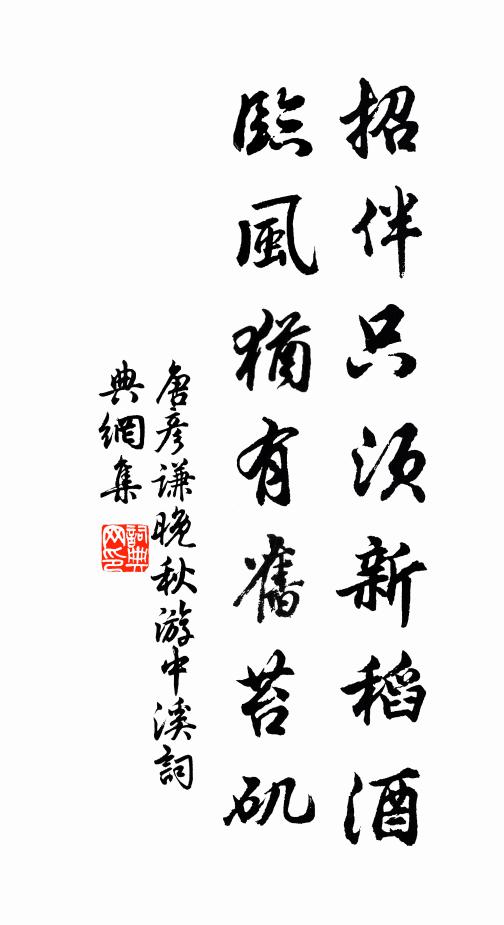 招伴只須新稻酒
臨風猶有舊苔矶
唐彦謙晚秋游中溪詞
典網集
詞典網印